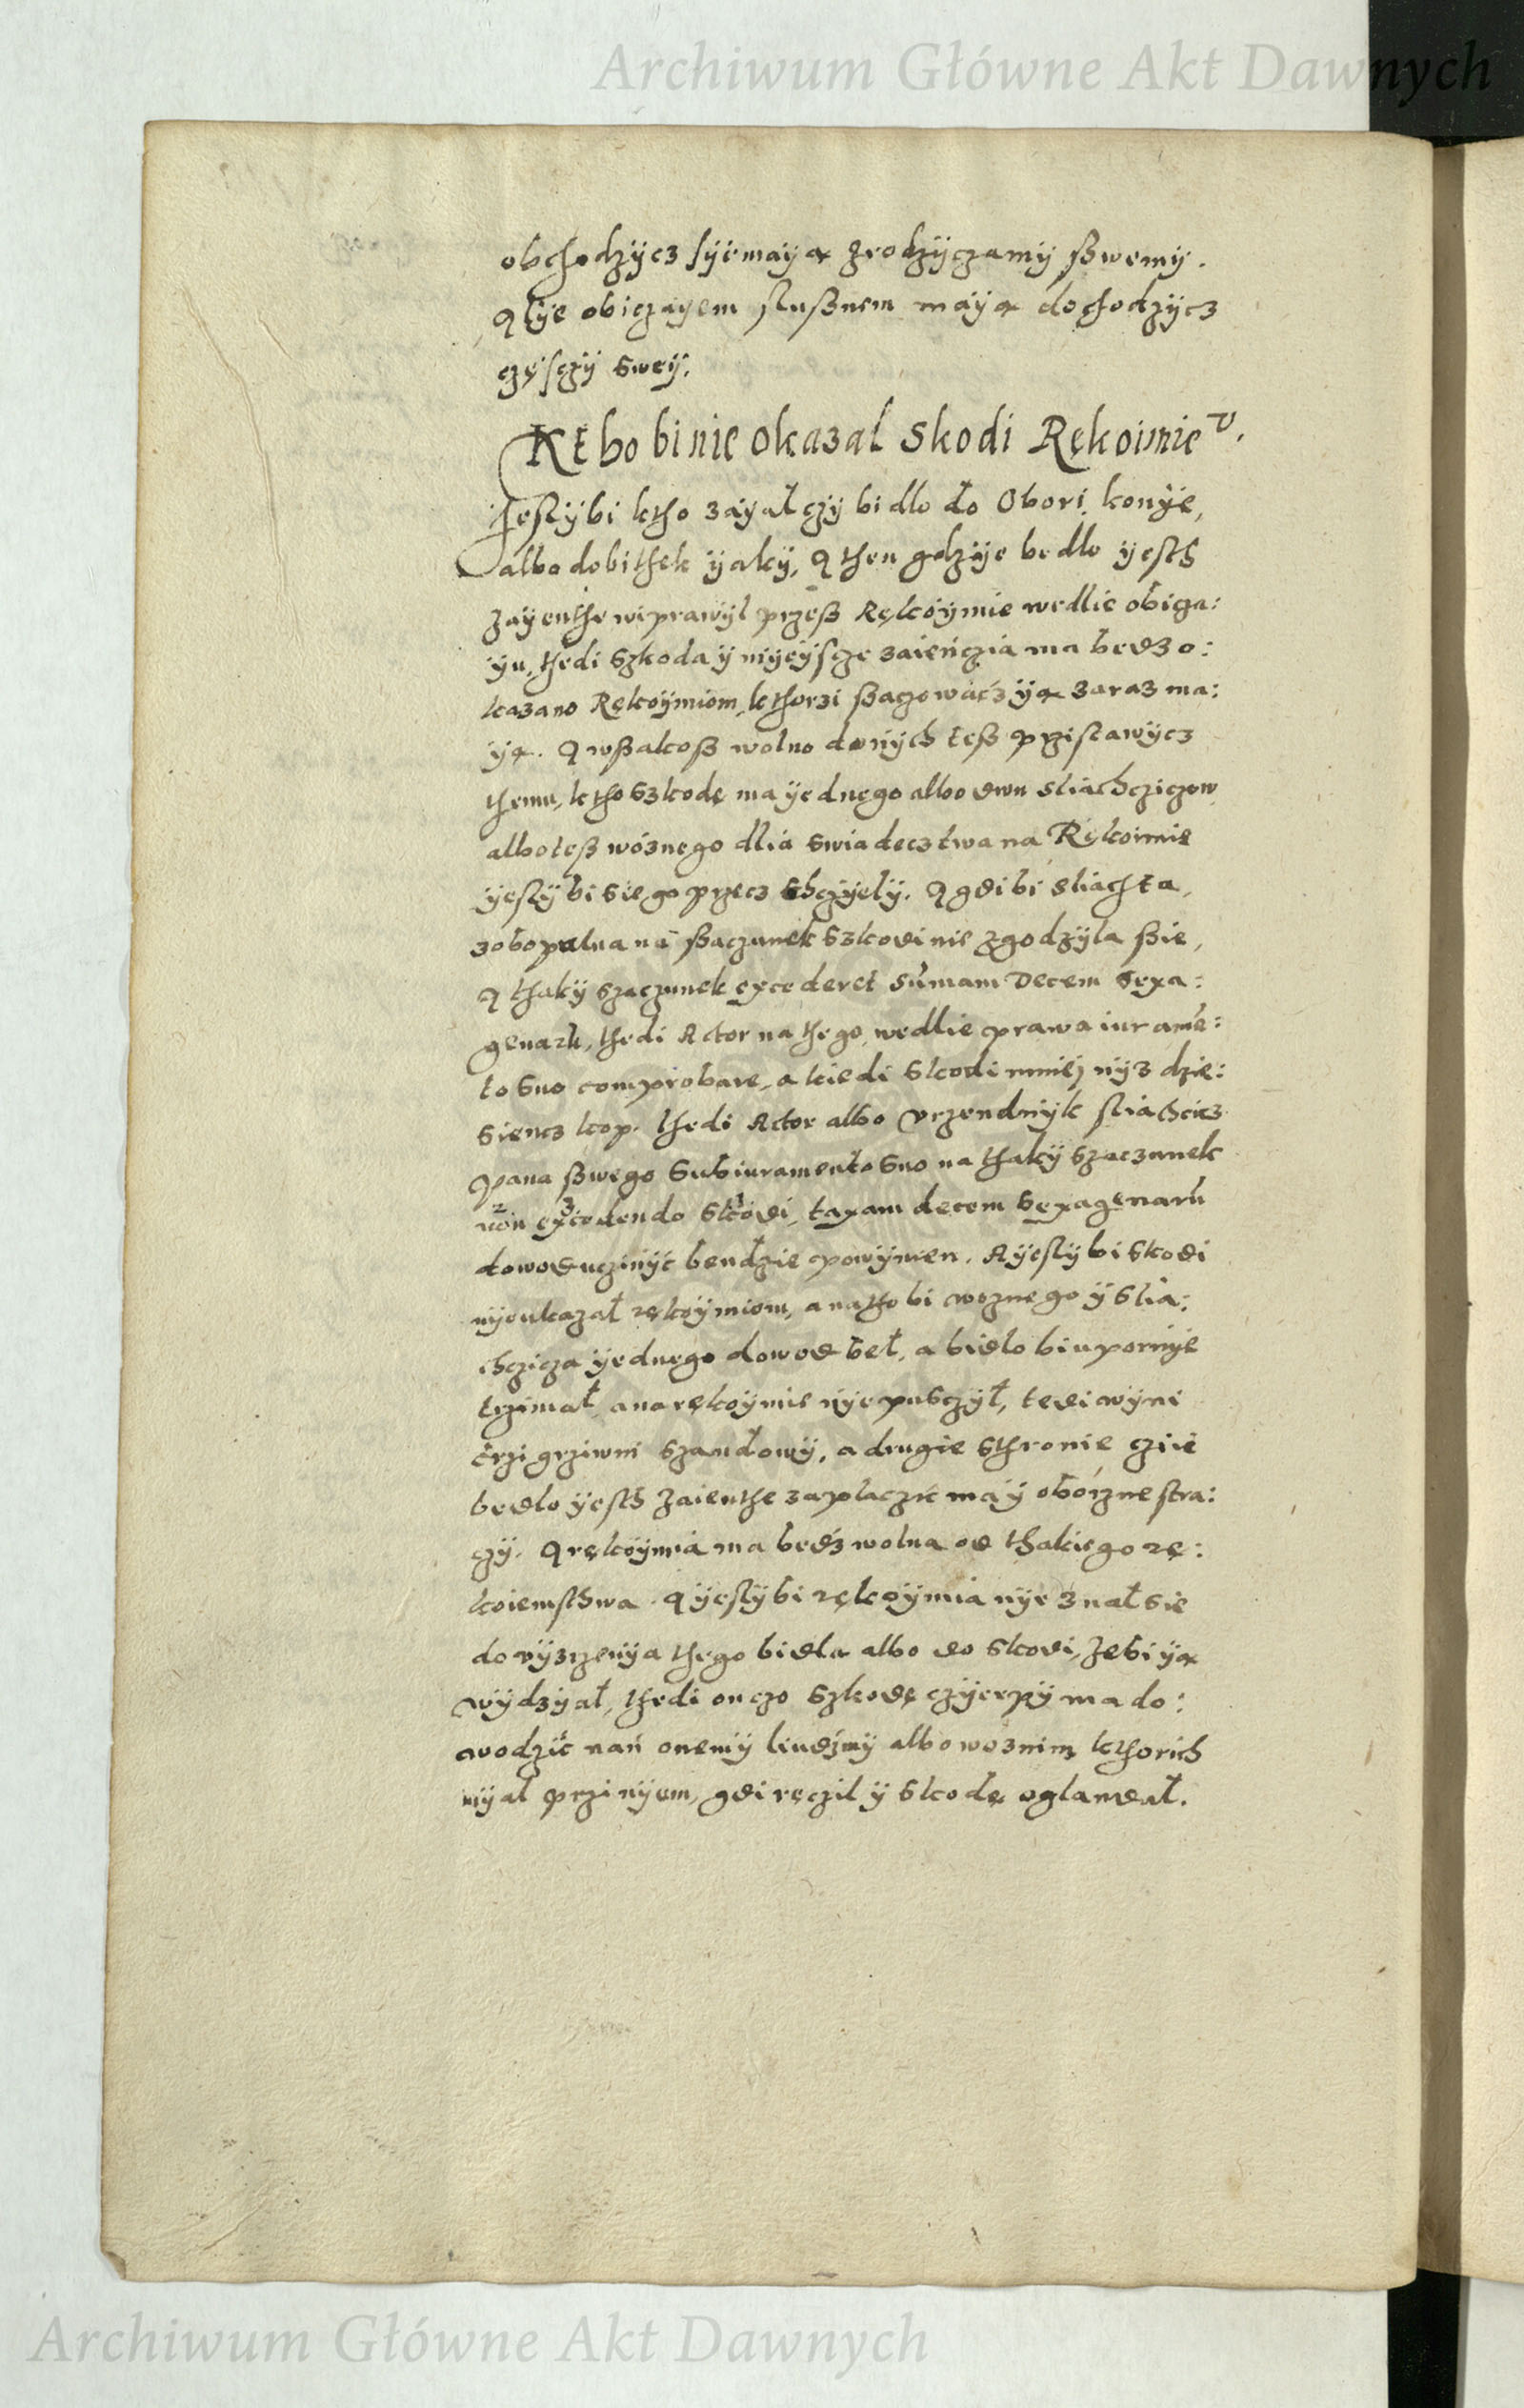 Archiwum Główne Akt Dawnych
obchodzÿcz sÿe maÿą zrodzÿczamÿ ßwemÿ.
Alÿe obiczaÿem slußnem maÿą dochodzÿcz
częsczÿ sweÿ.
Ktho bi nie okazal Skodi Rękoimie
Jeslÿbi ktho zaÿał czÿ bidlo do Obori, konÿe,
albo dobithek ÿakÿ, A then gdzÿe bedlo ÿesth
zaÿenthe wiprawÿl przeß Rękoÿmie wedlie obicza:
ÿu, thedi Szkoda ÿ mÿeÿscze zaienczia ma bedz o:
kazano Rękoÿmiom, kthorzi ßaczowacz ÿą zaraz ma:
ÿą. A wßakoß wolno do nÿch teß przistawÿcz
themu, ktho Szkodę ma ÿednego albo dwu sliachcziczow
albo teß woznego dlia swiadecztwa na Rękoimie
ÿeslÿbi sie go przecz chczÿelÿ. A gdibi sliachta,
zobopalna na ßaczunek Szkodi nie zgodzÿla ßie,
A thakÿ Szaczunek excederet sumam Decem Sexa:
genaru, thedi Actor na thego, wedlie prawa iurame:
to suo comprobare, a kiedi Skodi mniej nÿz dzie:
siencz kop. thedi Actor albo vrzendnÿk sliachcicz
pana ßwego sub iuramento suo na thakÿ Szaczunek
non excedendo Skodi, taxam decem Sexagenaru
dowod uczinÿć bendzie powÿnien. A ÿeslÿbi Skodi
nÿe ukazał rękoÿmiom, a na tho bi woznego ÿ slia:
chczicza ÿednego dowod beł, a bidlo bi upornÿe
trzimał, a na rękoÿmie nÿe pusczÿł, tedi wÿni
trzi grziwni Szandowÿ, a drugie sthronie czÿe
bedlo ÿesth zaienthe zaplaczić maÿ oborzne stra:
czÿ. A rękoÿmia ma bedz wolna od thakiego rę:
koiemsthwa. A ÿeslÿbi rękoÿmia nÿe znał sie
do vÿzrzenÿa thego bidla albo do Skodi, żebi ÿą
wÿdzÿał, thedi on czo Szkodę czÿerpÿ ma do:
wodzić nań onemÿ liudzmÿ albo woznim kthorich
mÿał przi nÿem, gdi ręczil ÿ Skodę oglandał.
Archiwum Główne Akt Dawnych